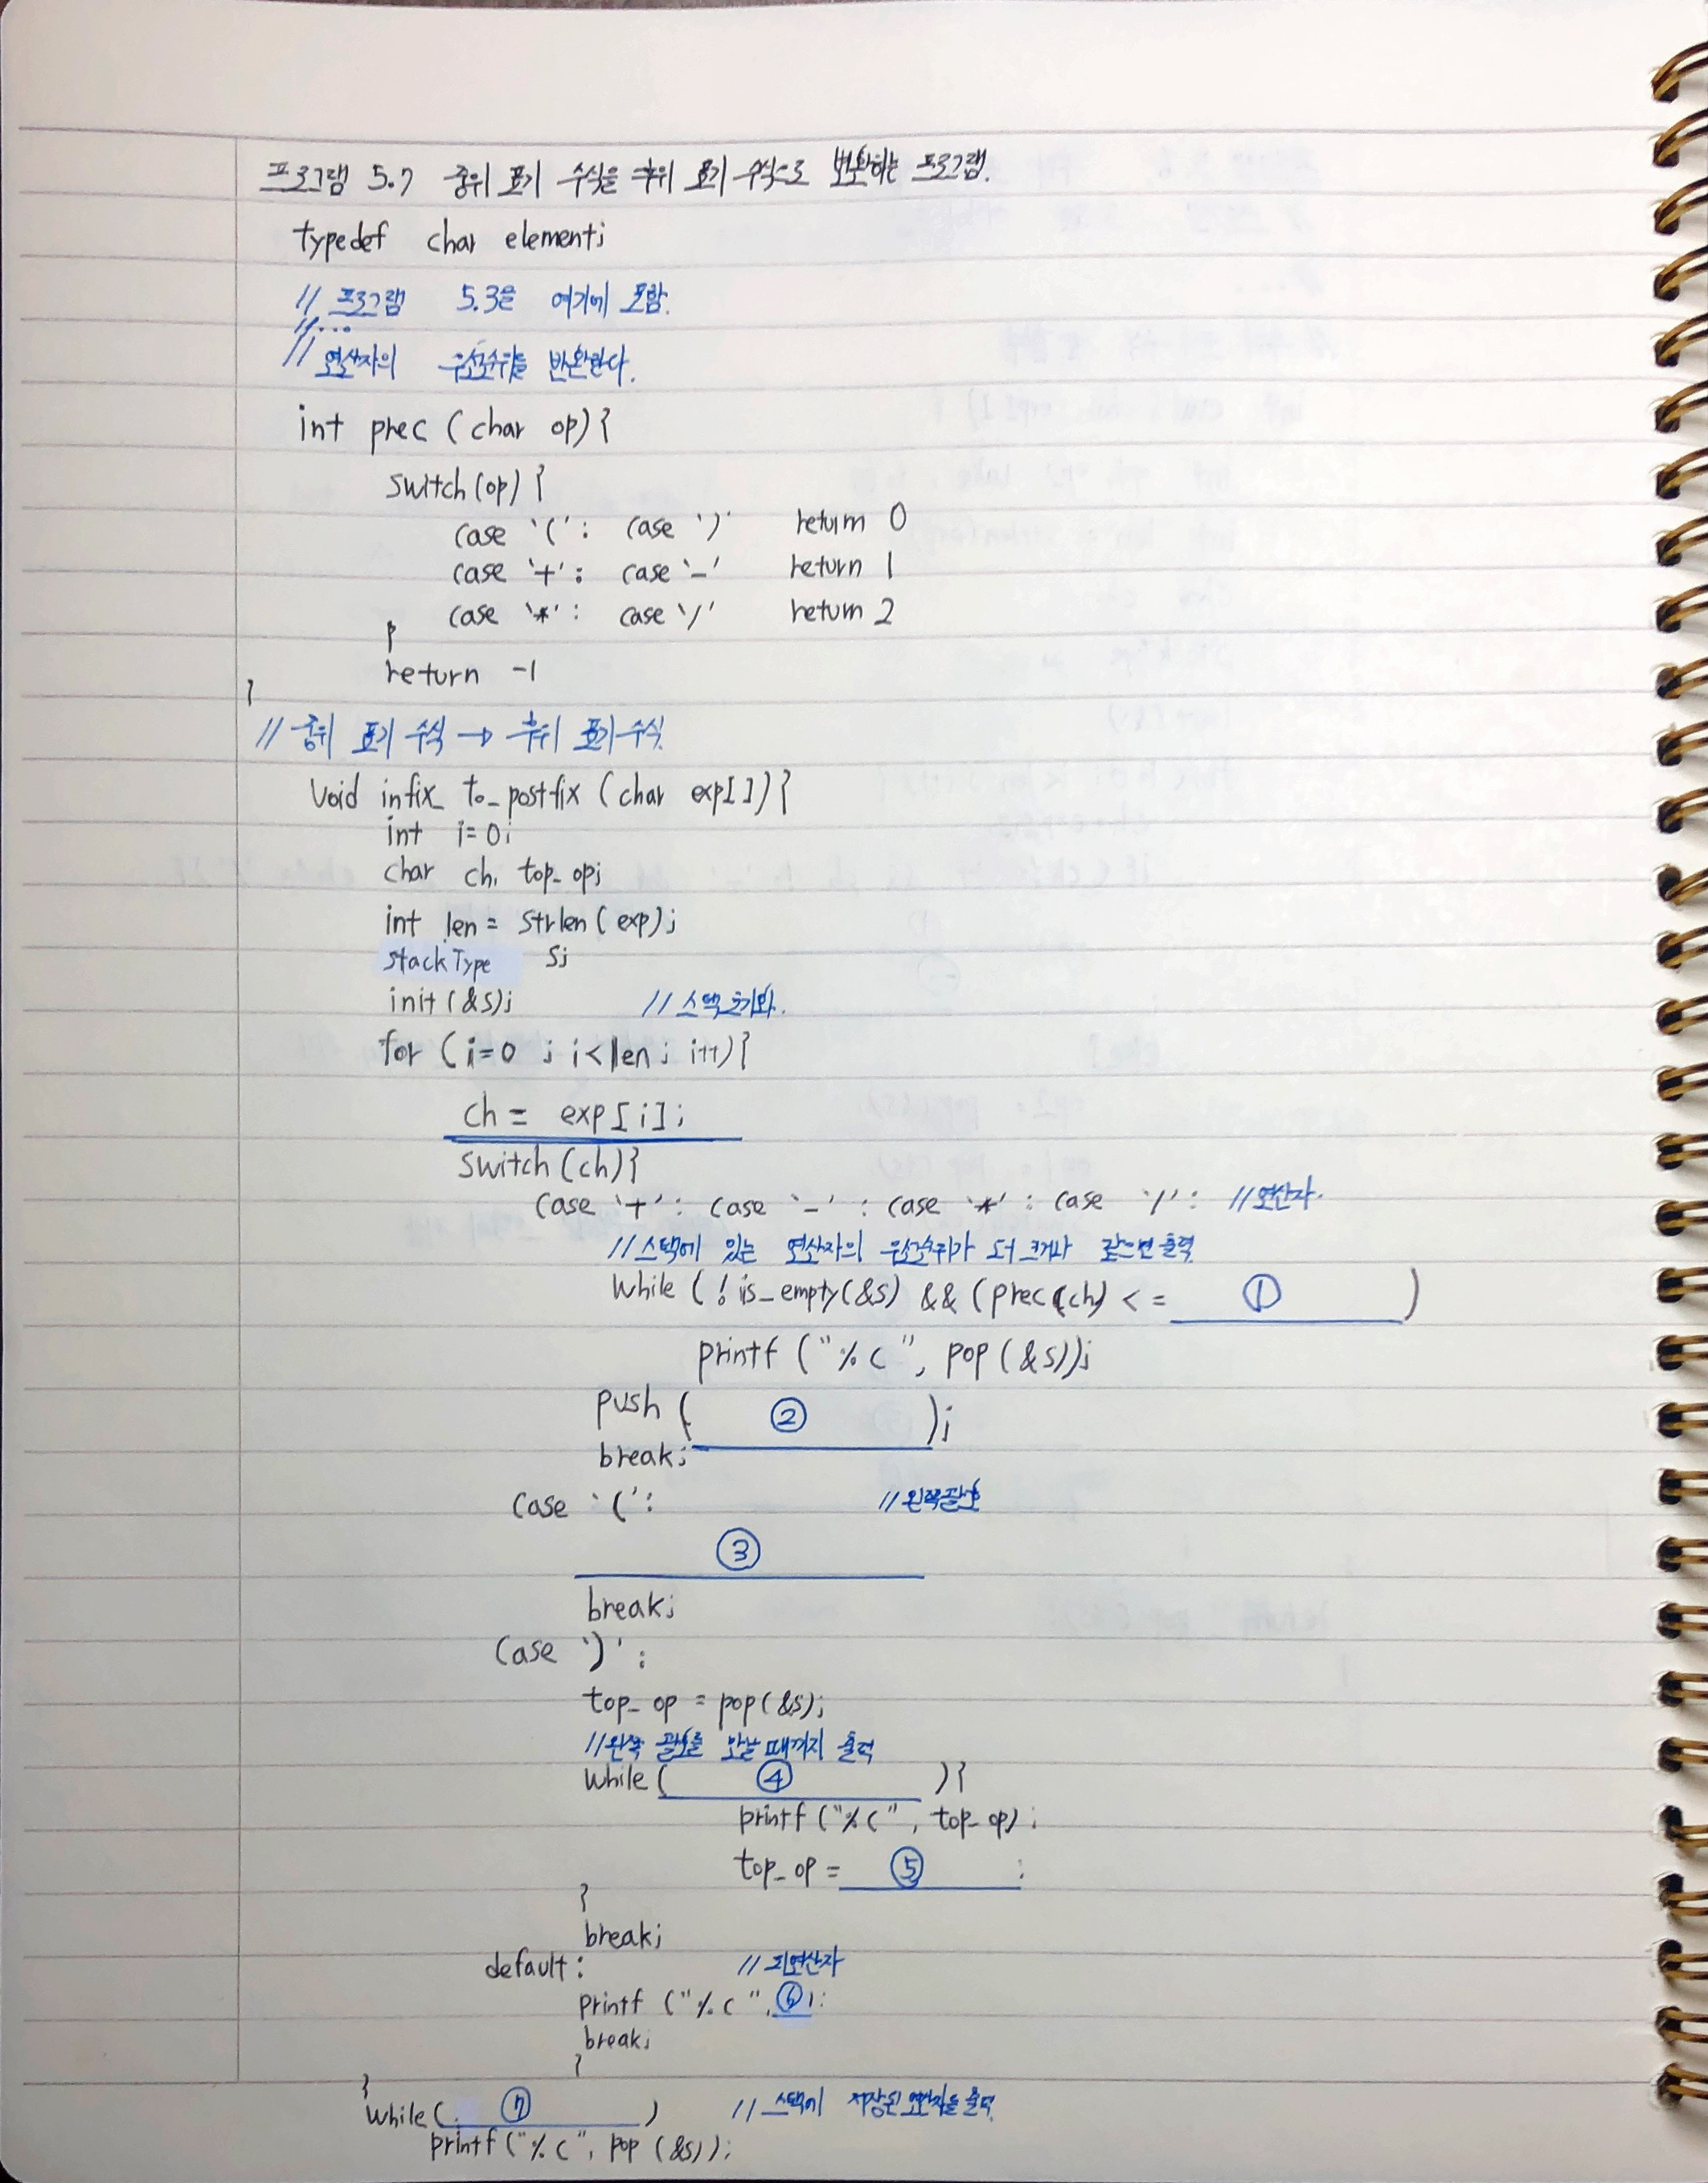 프로그램 5.7 중위 표기 수식을 후위 표기 수식으로 변환하는 프로그램.
typedef char element;
// 프로그램 5.3은 여기에 포함.
//...
// 연산자의 우선순위를 반환한다.
int prec (char op){
switch(op){
case '(': case ')' return 0
case '+': case '-' return 1
case '*': case '/' return 2
}
return -1
}
// 중위 표기 수식 → 후위 표기 수식
void infix_to_postfix (char exp[]){
int i=0;
char ch, top_op;
int len = strlen(exp);
stackType s;
init(&s); // 스택 초기화.
for (i=0 ; i<len ; i++){
ch = exp[i];
switch(ch){
case '+': case '-' : case '*' : case '/': // 연산자.
// 스택에 있는 연산자의 우선순위가 더 크거나 같으면 출력
while (!is_empty(&s) && (prec(ch) <= ① )
printf ("%c", pop(&s));
push ( ② );
break;
case '(': // 왼쪽괄호
③
break;
case ')' :
top_op = pop(&s);
// 왼쪽 괄호를 만날 때까지 출력
while ( ④ ){
printf ("%c", top_op) ;
top_op = ⑤ ;
}
break;
default: // 피연산자
printf ("%c", ⑥ );
break;
}
}
while( ⑦ ) // 스택에 저장된 연산자들 출력
printf("%c", pop (&s));